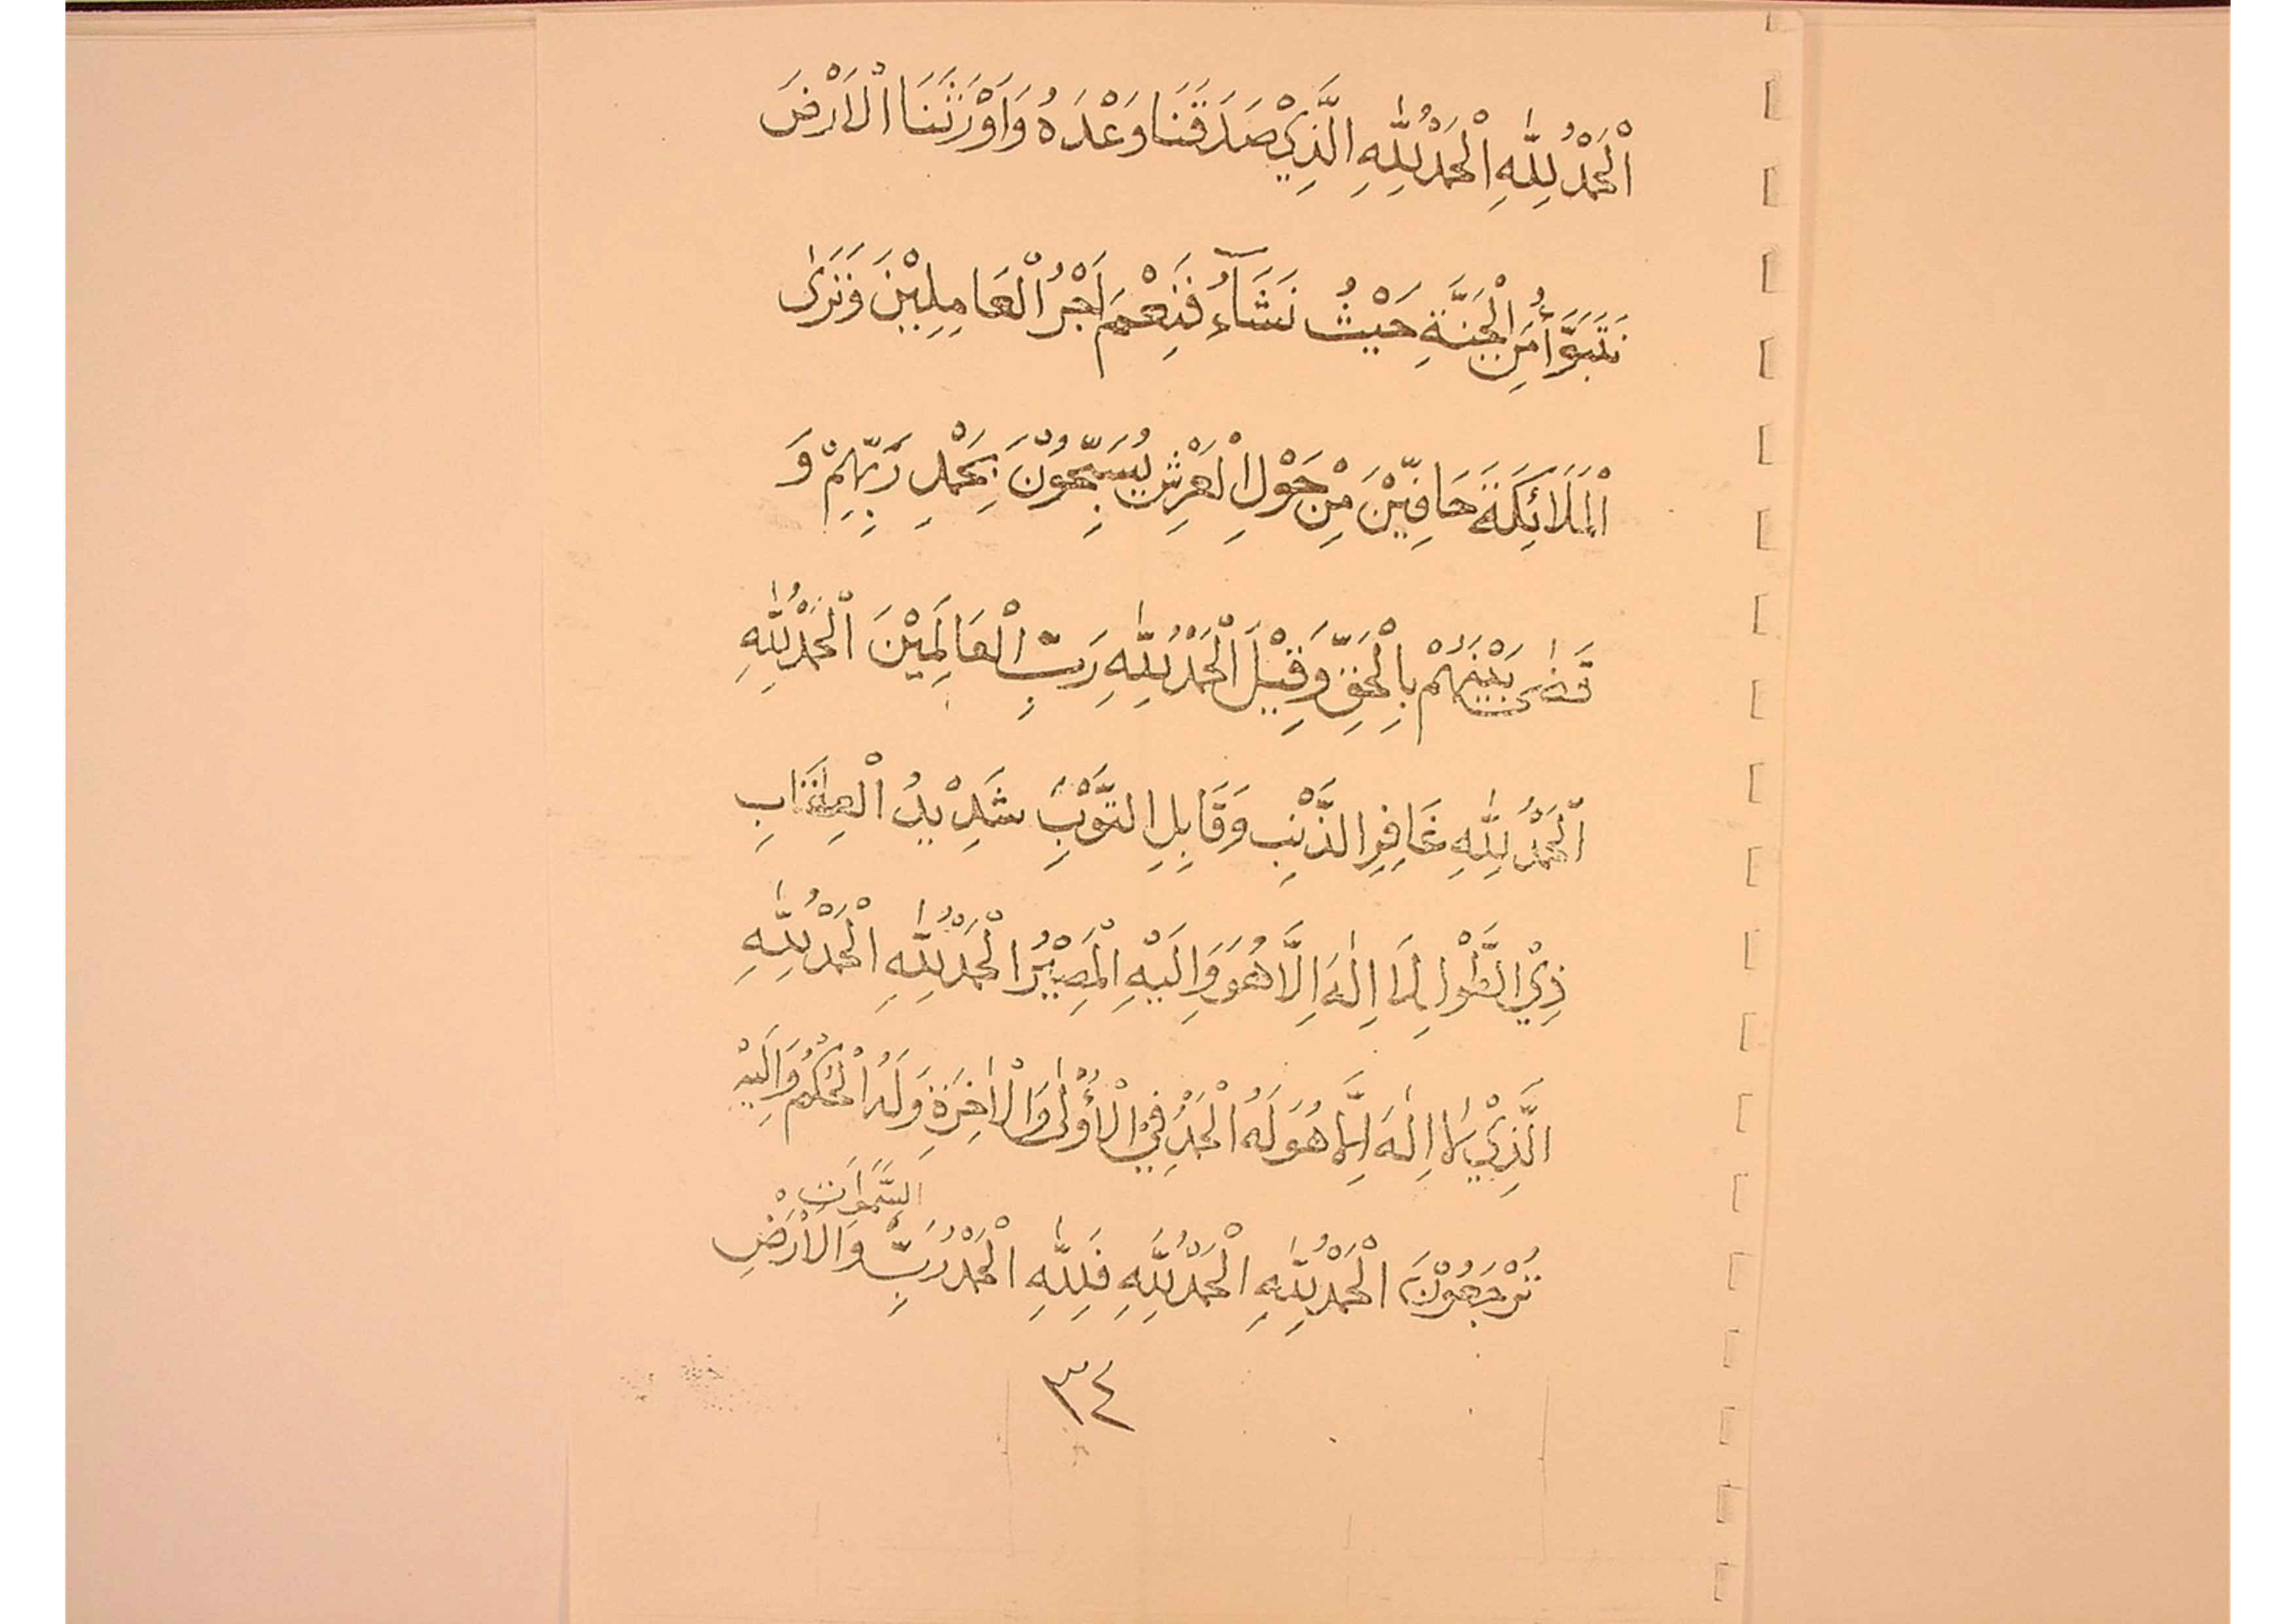 اَلْحَمْدُ لِلّٰهِ اَلْحَمْدُ لِلّٰهِ الَّذِيْ صَدَقَنَا وَعْدَهُ وَاَوْرَثَنَا الْاَرْضَ
نَتَبَوَّأُ مِنَ الْجَنَّةِ حَيْثُ نَشَآءُ فَنِعْمَ اَجْرُ الْعَامِلِيْنَ وَتَرٰى
الْمَلَائِكَةَ حَافِّيْنَ مِنْ حَوْلِ الْعَرْشِ يُسَبِّحُوْنَ بِحَمْدِ رَبِّهِمْ وَ
قَضٰى بَيْنَهُمْ بِالْحَقِّ وَقِيْلَ الْحَمْدُ لِلّٰهِ رَبِّ الْعَالَمِيْنَ اَلْحَمْدُ لِلّٰهِ
اَلْحَمْدُ لِلّٰهِ غَافِرِ الذَّنْبِ وَقَابِلِ التَّوْبِ شَدِيْدُ الْعِقَابِ
ذِيْ الطَّوْلِ لَا اِلٰهَ اِلَّا هُوَ وَاِلَيْهِ الْمَصِيْرُ اَلْحَمْدُ لِلّٰهِ اَلْحَمْدُ لِلّٰهِ
الَّذِيْ لَا اِلٰهَ اِلَّا هُوَ لَهُ الْحَمْدُ فِيْ الْأُوْلٰى وَالْاٰخِرَةِ وَلَهُ الْحُكْمُ وَاِلَيْهِ
السَّمَوَاتِ
تُرْجَعُوْنَ اَلْحَمْدُ لِلّٰهِ اَلْحَمْدُ لِلّٰهِ فَلِلّٰهِ الْحَمْدُ رَبِّ وَالْاَرْضِ
٣٤